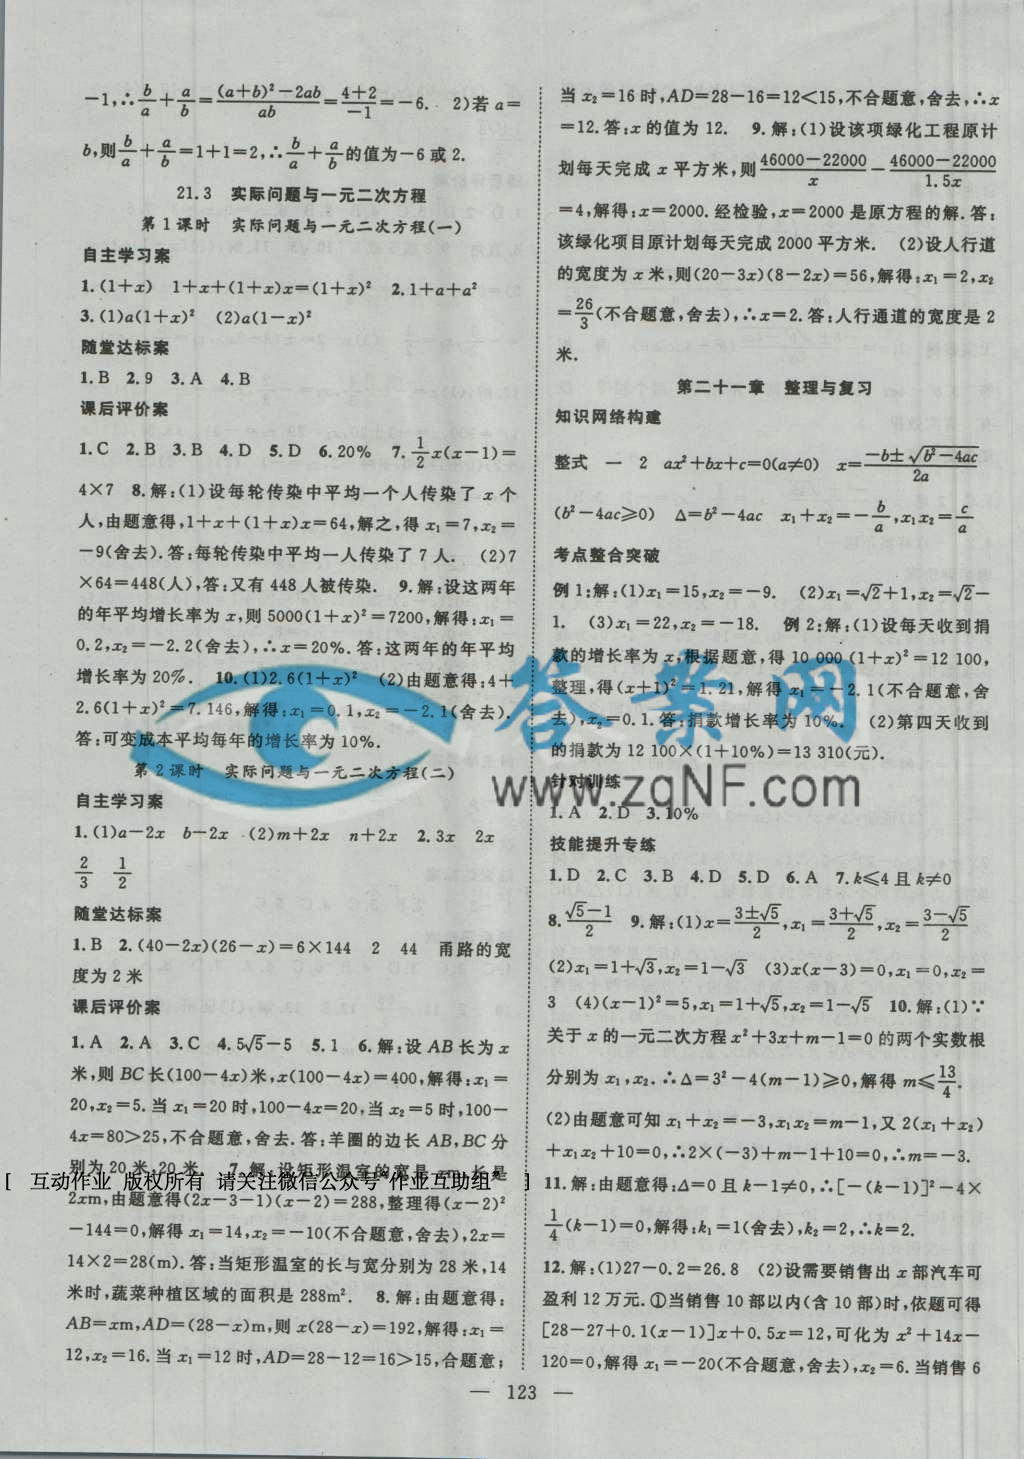 -1,∴b/a+a/b=((a+b)²-2ab)/ab=(4+2)/-1=-6. 2)若 a=
b,则b/a+a/b=1+1=2,∴b/a+a/b的值为-6或2.
21.3 实际问题与一元二次方程
第1课时 实际问题与一元二次方程(一)
自主学习案
1.(1+x) 1+x+(1+x)x=(1+x)² 2.1+a+a²
3.(1)a(1+x)² (2)a(1-x)²
随堂达标案
1.B 2.9 3.A 4.B
课后评价案
1.C 2.B 3.B 4.D 5.D 6.20% 7.1/2x(x-1)=
4×7 8.解:(1)设每轮传染中平均一个人传染了 x 个
人,由题意得,1+x+(1+x)x=64,解之,得 x₁=7,x₂=
-9(舍去).答:每轮传染中平均一人传染了 7 人. (2)7
×64=448(人),答:又有 448 人被传染. 9.解:设这两年
的年平均增长率为 x,则 5000(1+x)²=7200,解得:x₁=
0.2,x₂=-2.2(舍去),∴x=20%.答:这两年的年平均
增长率为 20%. 10.(1)2.6(1+x)² (2)由题意得:4+
2.6(1+x)²=7.146,解得:x₁=0.1,x₂=-2.1(舍去).
答:可变成本平均每年的增长率为 10%.
第2课时 实际问题与一元二次方程(二)
自主学习案
1.(1)a-2x b-2x (2)m+2x n+2x 2.3x 2x
2/3 1/2
随堂达标案
1.B 2.(40-2x)(26-x)=6×144 2 44 甬路的宽
度为 2 米
课后评价案
1.A 2.A 3.C 4.5√5-5 5.1 6.解:设 AB 长为 x
米,则 BC 长(100-4x)米,x(100-4x)=400,解得:x₁=
20,x₂=5.当 x₁=20 时,100-4x=20,当 x₂=5 时,100-
4x=80>25,不合题意,舍去.答:羊圈的边长 AB,BC 分
别为 20 米,20 米. 7.解:设矩形温室的宽是 xm,长是
[ 互动作业 版权所有 请关注微信公众号"作业互助组" ]
2xm,由题意得(2x-3-1)(x-2)=288,整理得(x-2)²
-144=0,解得 x₁=14,x₂=-10(不合题意,舍去),2x=
14×2=28(m).答:当矩形温室的长与宽分别为 28 米,14
米时,蔬菜种植区域的面积是 288m². 8.解:由题意得:
AB=xm,AD=(28-x)m,则 x(28-x)=192,解得:x₁=
12,x₂=16.当 x₁=12 时,AD=28-12=16>15,合题意;
当 x₂=16 时,AD=28-16=12<15,不合题意,舍去,∴x
=12.答:x 的值为 12. 9.解:(1)设该项绿化工程原计
划每天完成 x 平方米,则(46000-22000)/x-(46000-22000)/1.5x
=4,解得:x=2000.经检验,x=2000 是原方程的解.答:
该绿化项目原计划每天完成 2000 平方米. (2)设人行道
的宽度为 x 米,则(20-3x)(8-2x)=56,解得:x₁=2,x₂
=26/3(不合题意,舍去),∴x=2.答:人行通道的宽度是 2
米.
第二十一章 整理与复习
知识网络构建
整式 一 2 ax²+bx+c=0(a≠0) x=(-b±√(b²-4ac))/2a
(b²-4ac≥0) Δ=b²-4ac x₁+x₂=-b/a,x₁x₂=c/a
考点整合突破
例 1:解:(1)x₁=15,x₂=-9. (2)x₁=√2+1,x₂=√2-
1. (3)x₁=22,x₂=-18. 例 2:解:(1)设每天收到捐
款的增长率为 x,根据题意,得 10 000(1+x)²=12 100,
整理,得(x+1)²=1.21,解得 x₁=-2.1(不合题意,舍
去),x₂=0.1.答:捐款增长率为 10%. (2)第四天收到
的捐款为 12 100×(1+10%)=13 310(元).
针对训练
1.A 2.D 3.10%
技能提升专练
1.D 2.C 3.B 4.D 5.D 6.A 7.k≤4 且 k≠0
8.(√5-1)/2 9.解:(1)x=(3±√5)/2,x₁=(3+√5)/2,x₂=(3-√5)/2
(2)x₁=1+√3,x₂=1-√3 (3)x(x-3)=0,x₁=0,x₂=
3 (4)(x-1)²=5,x₁=1+√5,x₂=1-√5 10.解:(1)∵
关于 x 的一元二次方程 x²+3x+m-1=0 的两个实数根
分别为 x₁,x₂.∴Δ=3²-4(m-1)≥0,解得 m≤13/4.
(2)由题意可知 x₁+x₂=-3,x₁x₂=m-1,又 2(x₁+x₂)
+x₁x₂+10=0,∴2×(-3)+m-1+10=0,∴m=-3.
11.解:由题意得:Δ=0 且 k-1≠0,∴[-(k-1)]²-4×
1/4(k-1)=0,解得:k₁=1(舍去),k₂=2,∴k=2.
12.解:(1)27-0.2=26.8 (2)设需要销售出 x 部汽车可
盈利 12 万元.①当销售 10 部以内(含 10 部)时,依题可得
[28-27+0.1(x-1)]x+0.5x=12,可化为 x²+14x-
120=0,解得 x₁=-20(不合题意,舍去),x₂=6.当销售 6
— 123 —
答案网
www.zqNF.com